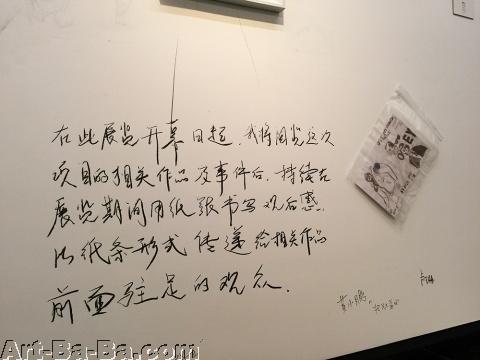 在此展览开幕日起，我将阅览这次
项目的相关作品及事件后，持续在
展览期间用纸张书写观后感，
以纸条形式传递给相关作品
前面驻足的观众．
OBEY
黄小鹏
Art-Ba-Ba.com